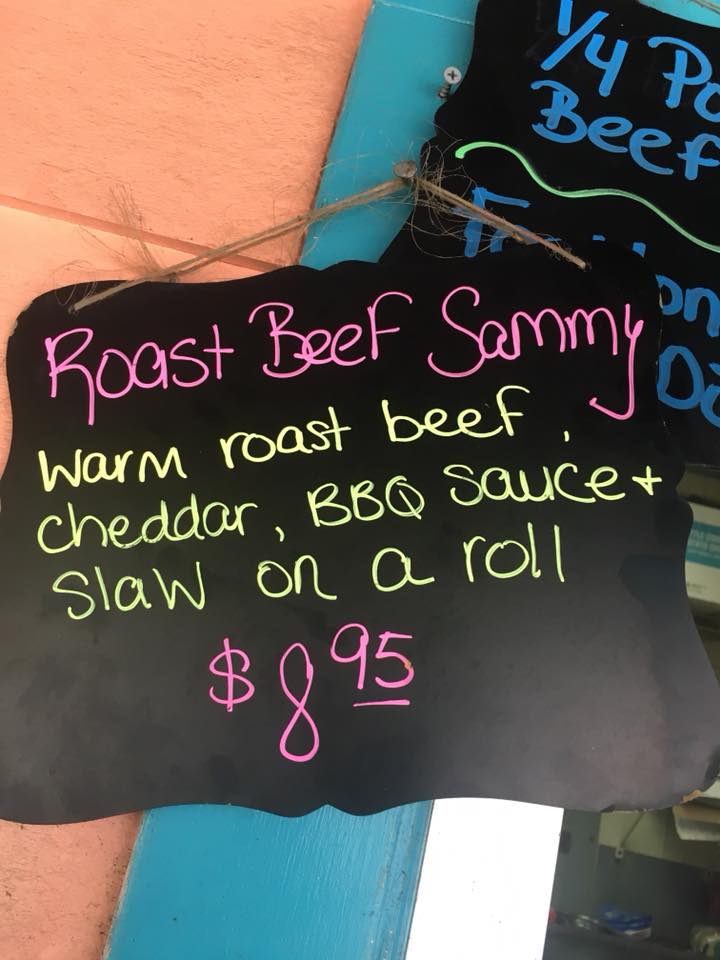 1/4 Po
Beef
Roast Beef Sammy
warm roast beef,
cheddar, BBQ Sauce +
Slaw on a roll
$8.95